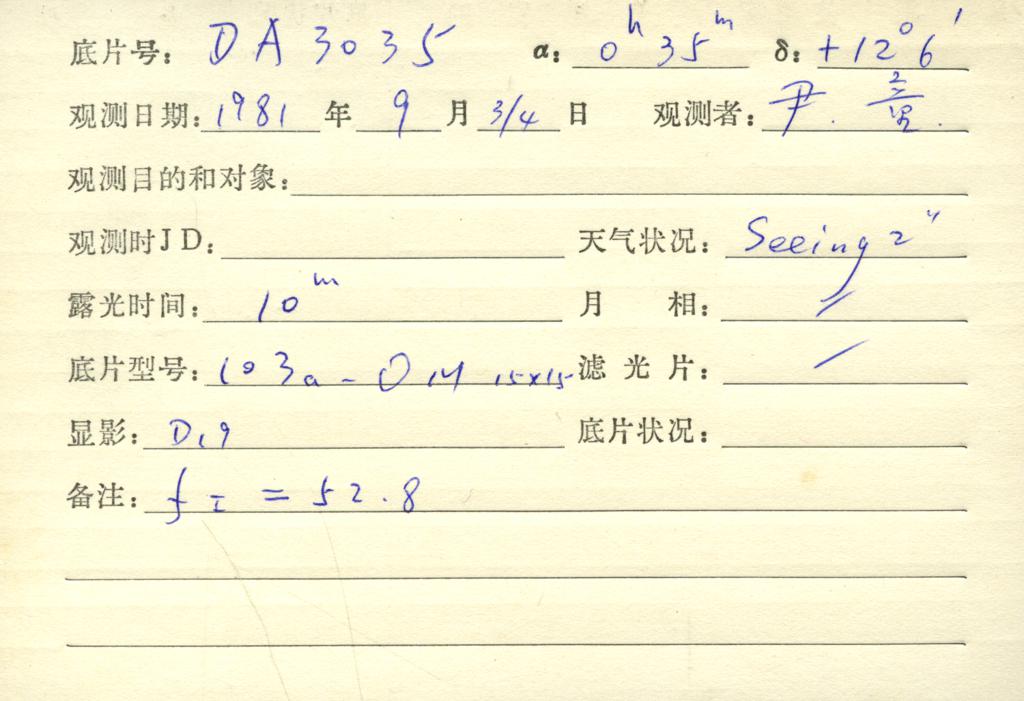 底片号: DA3035 α: 0ʰ35ᵐ δ: +12°6′
观测日期: 1981 年 9 月 3/4 日 观测者: 尹.
观测目的和对象:
观测时JD: 天气状况: Seeing 2″
露光时间: 10ᵐ 月 相:
底片型号: 103a-O 15×15 滤光片: /
显影: D19 底片状况:
备注: = 52.8